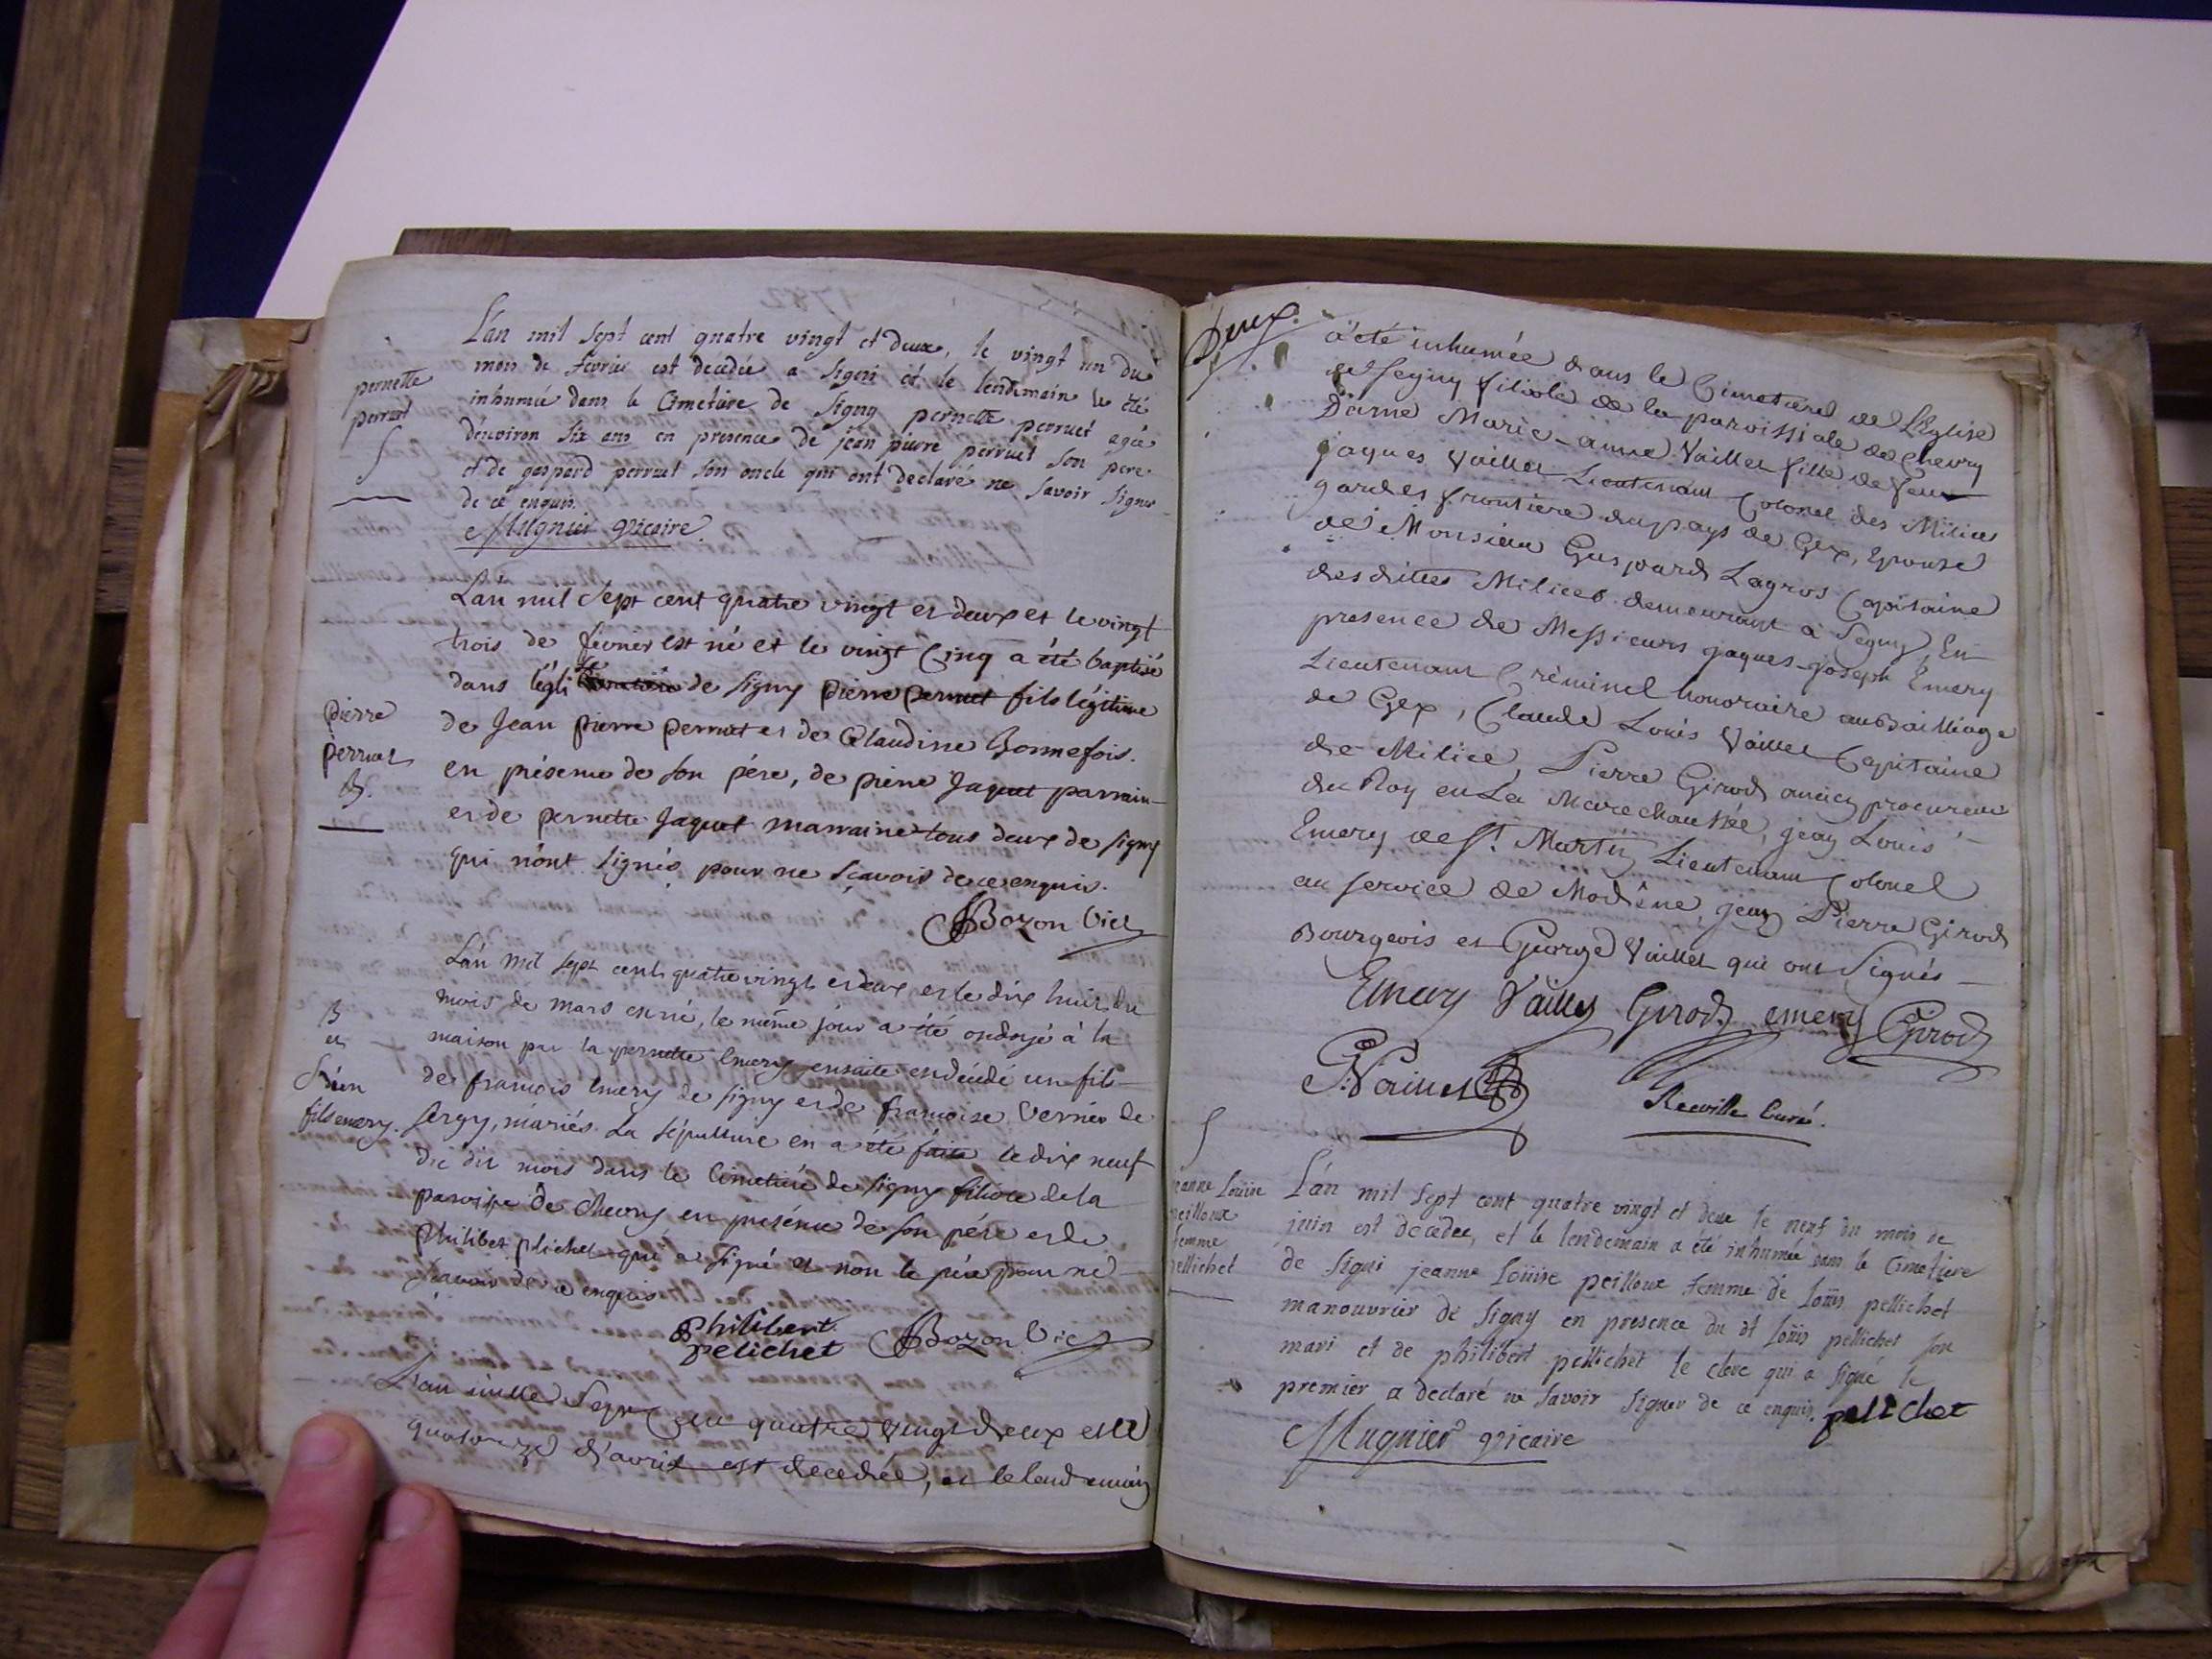 L'an mil sept cent quatre vingt et deux, le vingt un du
mois de Fevrier est decedée a Signi et le lendemain a été
inhumée dans le Cimetiere de Signy pernette perruet agée
d'environ six ans en presence de jean pierre perruet son pere
et de gaspard perruet son oncle qui ont declaré ne savoir signer
de ce enquis.
Mugnier vicaire.
pernette
perruet
S
L'an mil sept cent quatre vingt et deux et le vingt
trois de fevrier est né et le vingt cinq a été baptisé
dans l'égli de signy pierre perruet fils légitime
de Jean pierre perruet et de Claudine Bonnefois.
en présence de son père, de pierre Jaquet parrain
et de pernette Jaquet marraine tous deux de signy
qui n'ont signés pour ne sçavoir de ce enquis.
Bozon Vic
pierre
perruet
B.
L'an mil sept cent quatre vingt et deux et le dix huit du
mois de mars est né, le même jour a été ondoyé à la
maison par la pernette Emery ensuite est décédé un fils
de francois Emery de signy et de francoise Vernier de
sergy, mariés. La sépulture en a été faite le dix neuf
du dit mois dans le Cimetiére de signy filiole de la
paroisse de Chevry en présence de son pére et de
Philibet plichet qui a signé et non le pére pour ne
sçavoir de ce enquis
Philibert Bozon Vic
pelichet
B
et
S d'un
fils emery.
L'an mille Sept Cen quatre vingt deux et le
quatorze d'avril est decedée, et le lendemain
Deux.
a été inhumée dans le Cimetiere de l'Eglise
de Segny filiole de la paroissiale de Chevry
Dame Marie-anne Vaillet fille de feu
jaques Vaillet Lieutenant Colonel des Milices
gardes frontiere du pays de Gex, Epouse
de Monsieur Gaspard Lagros Capitaine
desdittes Milices demeurant à Segny, En
presence de Messieurs jaques-joseph Emery
Lieutenant Criminel honoraire au Bailliage
de Gex, Claude Louis Vaillet Capitaine
de Milice, Pierre Girod ancien procureur
du Roy en La Marechaussée, jean Louis
Emery de St. Martin Lieutenant Colonel
au service de Modêne, jean Pierre Girod
Bourgeois et George Vaillet qui ont Signés
Emery Vaillet Girod emery Girod
G. Vaillet
Curé.
S
jeanne Loüise
peilloux
femme
pellichet
L'an mil sept cent quatre vingt et deux le neuf du mois de
juin est decedée, et le lendemain a été inhumée dans le Cimetiere
de Signi jeanne Loüise peilloux Femme de Loüis pellichet
manouvrier de Signy en presence du dt Loüis pellichet son
mari et de philibert pellichet le clerc qui a signé le
premier a declaré ne savoir signer de ce enquis. pelichet
Mugnier vicaire